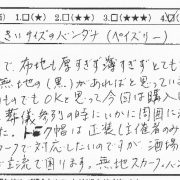 1.□(★) 2.□(★★) 3.□(★★★) 4.☑(
きいサイズのバンダナ(ペイズリー)
で、布地も厚すぎず薄すぎずとても
無地の(黒)があればと思ってい
ものでもOKと思って今回は購入し
葬儀参列の時にいかに周囲に
た。トーク帽は正装し主催者のみ
ークで対応したいのですが 酒場
が主流で困ります。無地スカーフ、バン